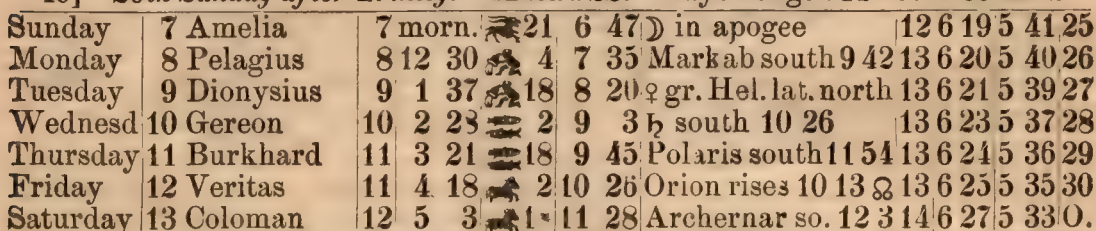 Sunday 7 Amelia 7 morn. 21 6 47 ☽ in apogee 12 6 19 5 41 25
Monday 8 Pelagius 8 12 30 4 7 35 Markab south 9 42 13 6 20 5 40 26
Tuesday 9 Dionysius 9 1 37 18 8 20 ♀ gr. Hel. lat. north 13 6 21 5 39 27
Wednesd 10 Gereon 10 2 28 2 9 3 ♄ south 10 26 13 6 23 5 37 28
Thursday 11 Burkhard 11 3 21 18 9 45 Polaris south 11 54 13 6 24 5 36 29
Friday 12 Veritas 11 4 18 2 10 26 Orion rises 10 13 ☊ 13 6 25 5 35 30
Saturday 13 Coloman 12 5 3 11 28 Archernar so. 12 3 14 6 27 5 33 O.